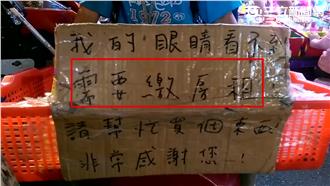 1972
我的眼睛看不到
需要繳房租
請幫忙買個東西
非常感謝您...!